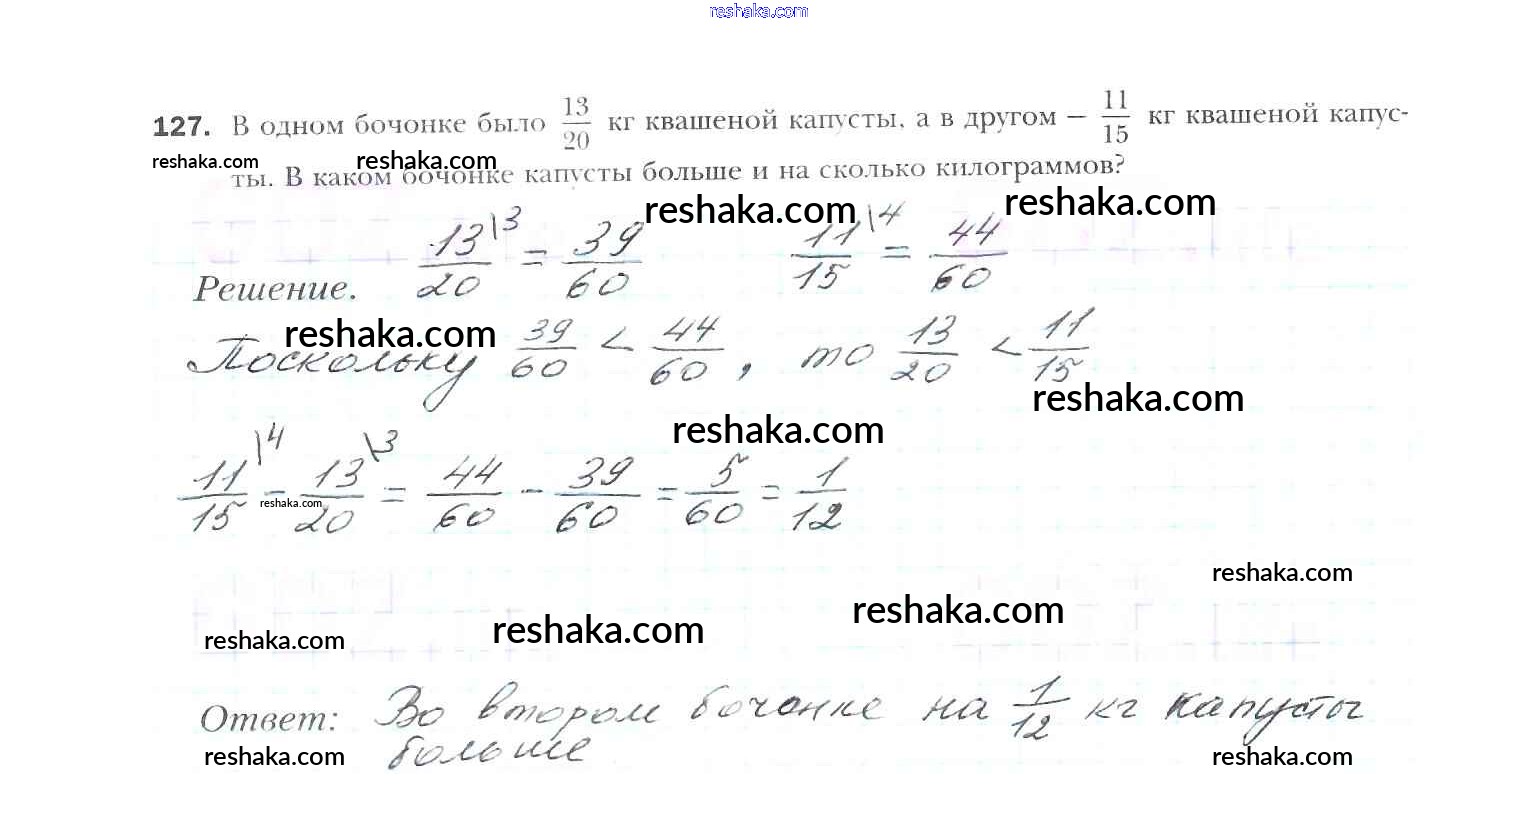 reshaka.com
127. В одном бочонке было 13/20 кг квашеной капусты, а в другом – 11/15 кг квашеной капус-
reshaka.com reshaka.com
ты. В каком бочонке капусты больше и на сколько килограммов?
reshaka.com reshaka.com
Решение. 13/20 \3 = 39/60 11/15 \4 = 44/60
reshaka.com
Поскольку 39/60 < 44/60, то 13/20 < 11/15
reshaka.com
reshaka.com
11/15 \4 - 13/20 \3 = 44/60 - 39/60 = 5/60 = 1/12
reshaka.com
reshaka.com
reshaka.com
reshaka.com
reshaka.com
Ответ: Во втором бочонке на 1/12 кг капусты
больше
reshaka.com reshaka.com